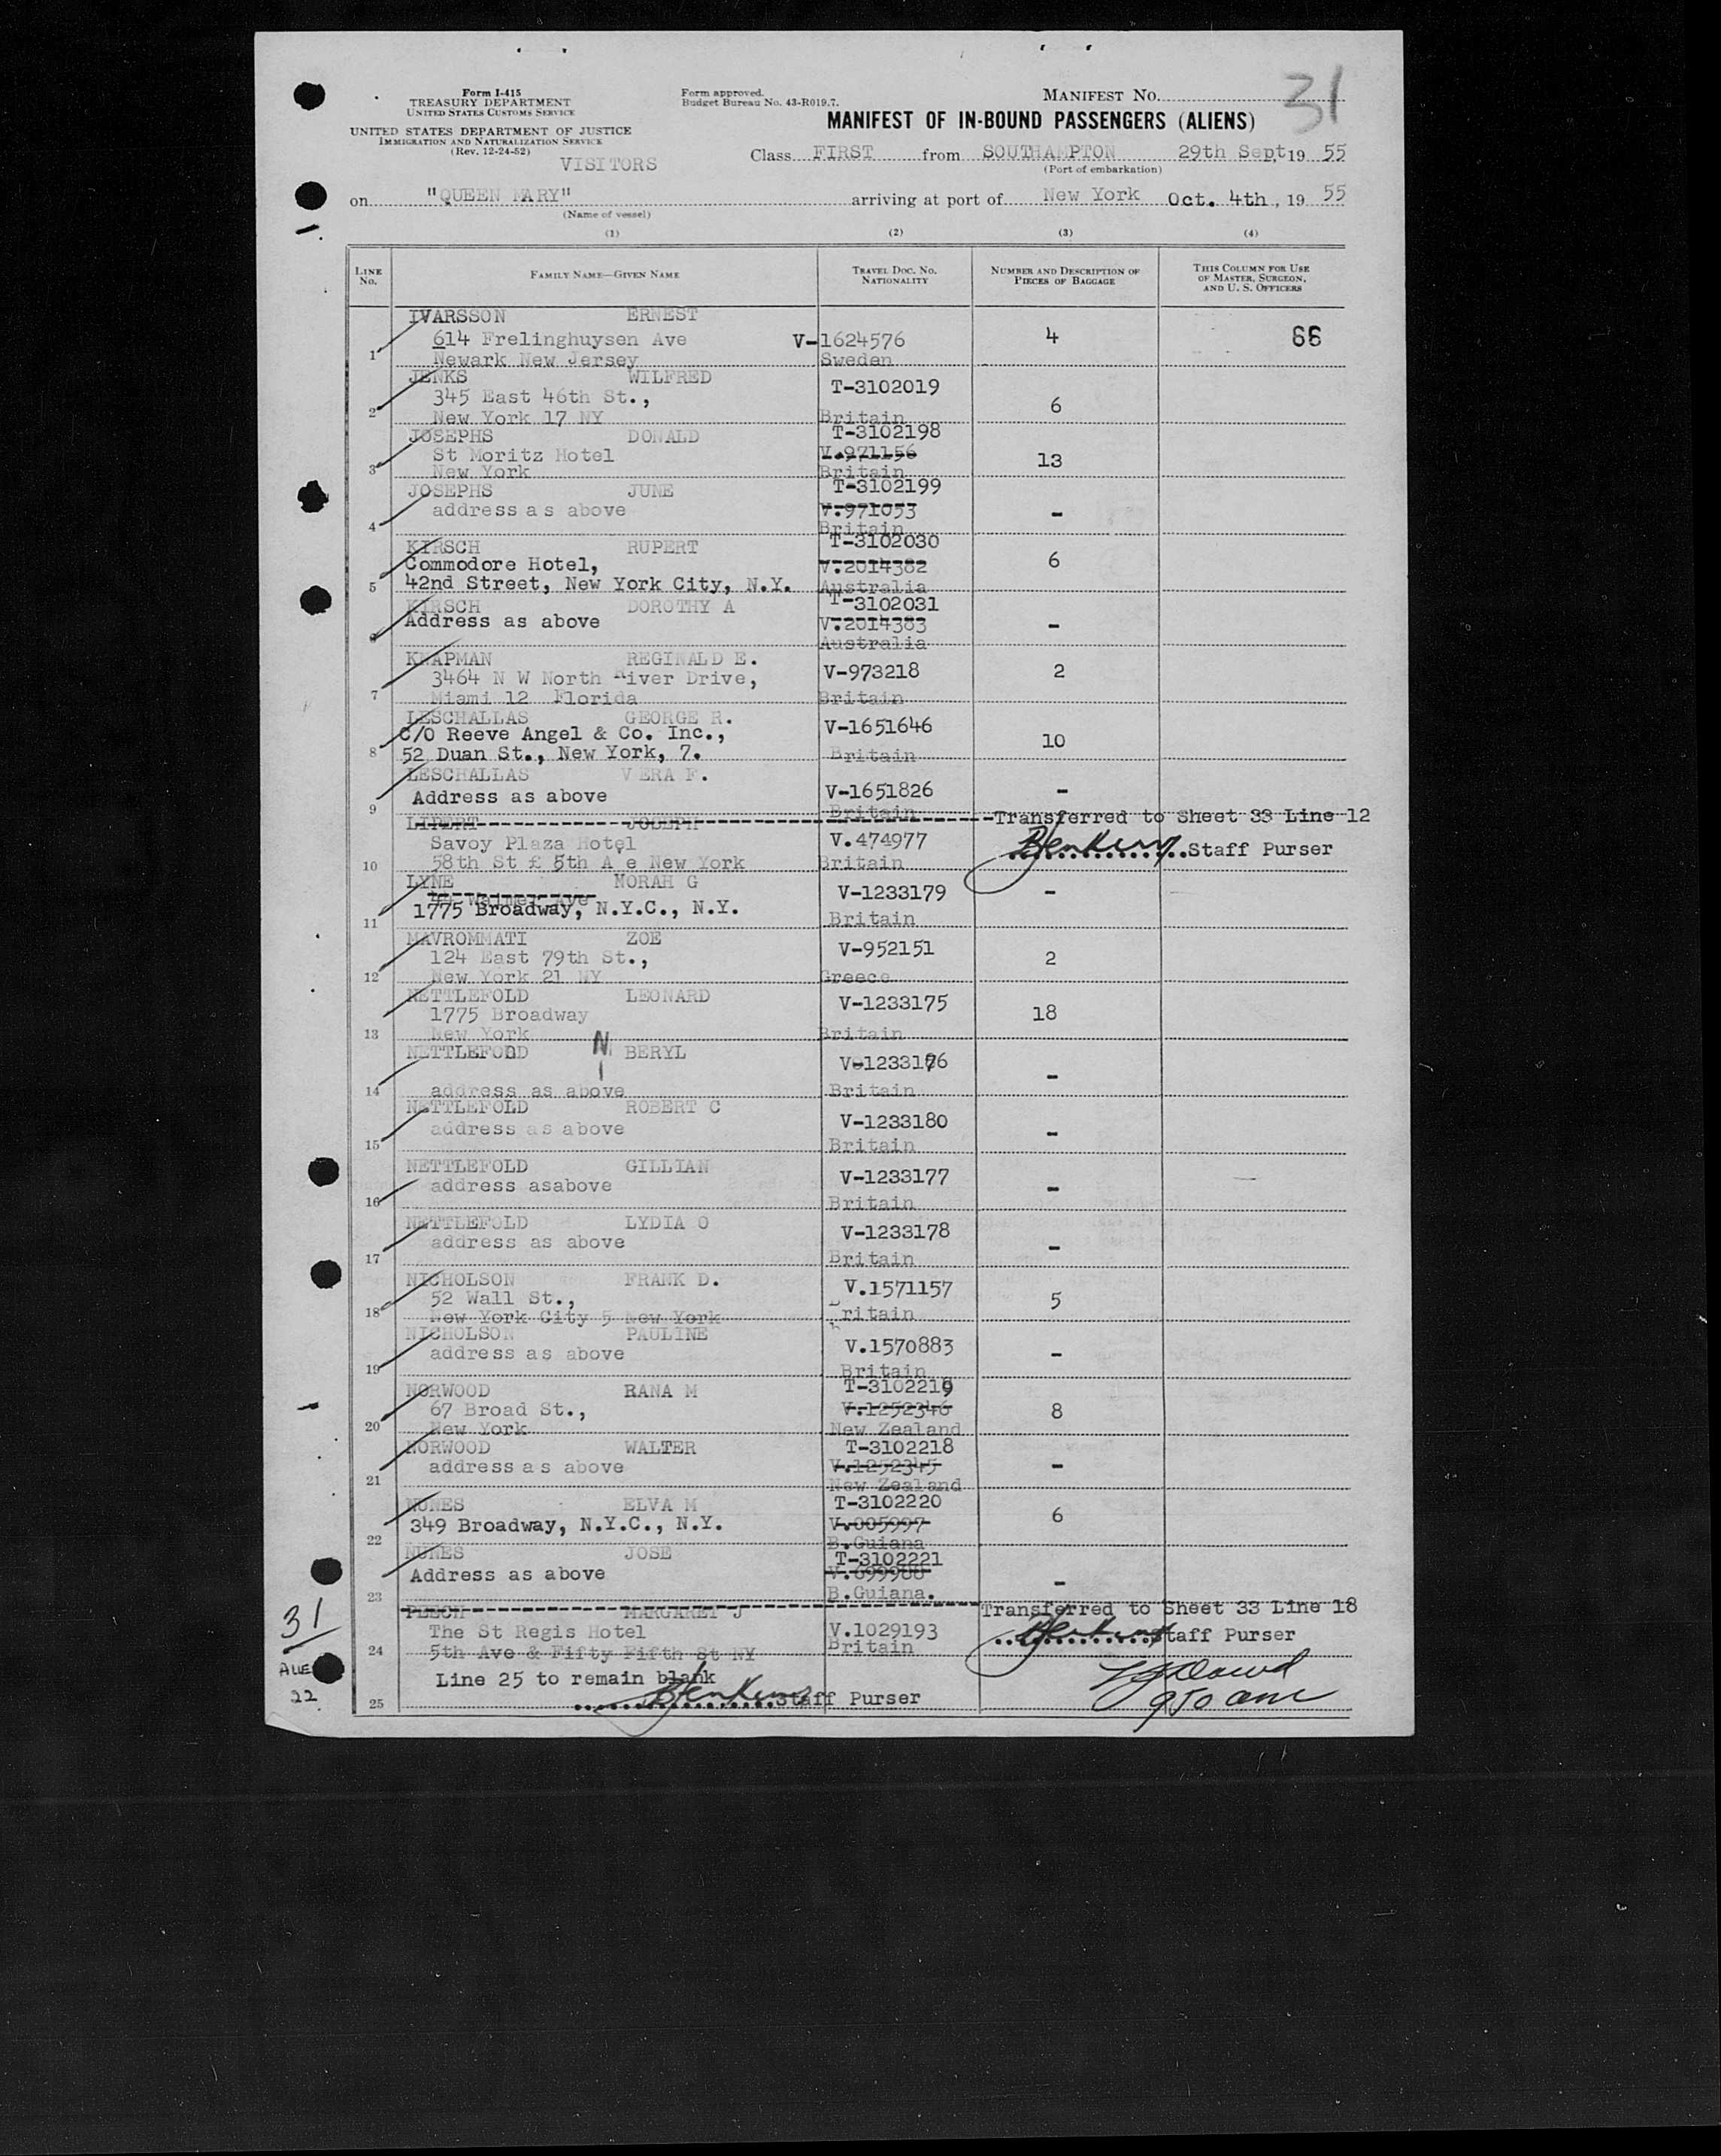 Form I-415
TREASURY DEPARTMENT
UNITED STATES CUSTOMS SERVICE
UNITED STATES DEPARTMENT OF JUSTICE
IMMIGRATION AND NATURALIZATION SERVICE
(Rev. 12-24-52)
VISITORS
Form approved.
Budget Bureau No. 43-R019.7.
MANIFEST No. 31
MANIFEST OF IN-BOUND PASSENGERS (ALIENS)
Class FIRST from SOUTHAMPTON 29th Sept, 19 55
(Port of embarkation)
on "QUEEN MARY" arriving at port of New York Oct. 4th, 19 55
(Name of vessel)
(1) (2) (3) (4)
LINE No. FAMILY NAME—GIVEN NAME TRAVEL DOC. No. NATIONALITY NUMBER AND DESCRIPTION OF PIECES OF BAGGAGE THIS COLUMN FOR USE OF MASTER, SURGEON, AND U. S. OFFICERS
IVARSSON ERNEST
614 Frelinghuysen Ave V-1624576 4 66
1 Newark New Jersey Sweden
JENKS WILFRED T-3102019
345 East 46th St., 6
2 New York 17 NY Britain
JOSEPHS DONALD T-3102198
St Moritz Hotel V.971156 13
3 New York Britain
JOSEPHS JUNE T-3102199
address as above V.971053 -
4 Britain
KIRSCH RUPERT T-3102030
Commodore Hotel, V.2014382 6
5 42nd Street, New York City, N.Y. Australia
KIRSCH DOROTHY A T-3102031
Address as above V.2014383 -
6 Australia
KNAPMAN REGINALD E.
3464 N W North River Drive, V-973218 2
7 Miami 12 Florida Britain
LESCHALLAS GEORGE R.
C/O Reeve Angel & Co. Inc., V-1651646 10
8 52 Duan St., New York, 7. Britain
LESCHALLAS VERA F.
Address as above V-1651826 -
9 Britain
LIPERT JOSEPH Transferred to Sheet 33 Line 12
Savoy Plaza Hotel V.474977 Staff Purser
10 58th St £ 5th A e New York Britain
LYNE NORAH G V-1233179 -
11 1775 Broadway, N.Y.C., N.Y. Britain
MAVROMMATI ZOE V-952151
124 East 79th St., 2
12 New York 21 NY Greece
NETTLEFOLD LEONARD V-1233175
1775 Broadway 18
13 New York Britain
NETTLEFOLD N BERYL V-1233176
14 address as above Britain -
NETTLEFOLD ROBERT C V-1233180
15 address as above Britain -
NETTLEFOLD GILLIAN V-1233177
16 address asabove Britain -
NETTLEFOLD LYDIA O V-1233178
17 address as above Britain -
NICHOLSON FRANK D. V.1571157
52 Wall St., 5
18 New York City 5 New York Britain
NICHOLSON PAULINE V.1570883
19 address as above Britain -
NORWOOD RANA M T-3102219
67 Broad St., V.1252346 8
20 New York New Zealand
NORWOOD WALTER T-3102218
address as above V.1252345 -
21 New Zealand
NUNES ELVA M T-3102220
349 Broadway, N.Y.C., N.Y. V.005997 6
22 B.Guiana
NUNES JOSE T-3102221
Address as above V.699988 -
23 B.Guiana.
MARGARET J Transferred to Sheet 33 Line 18
The St Regis Hotel V.1029193 Staff Purser
24 5th Ave & Fifty Fifth St NY Britain
Line 25 to remain blank
25 Staff Purser 950 am
31
22